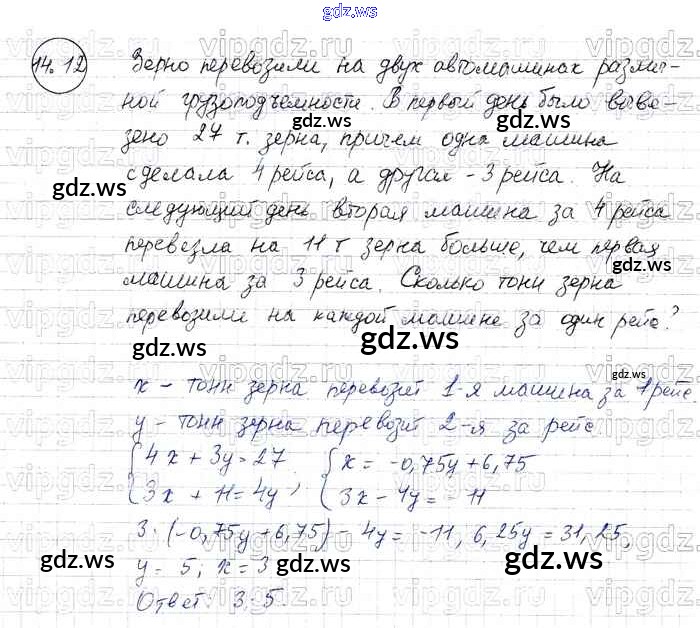 gdz.ws
14.12
Зерно перевозили на двух автомашинах различ-
ной грузоподъемности. В первый день было выве-
зено 27 т. зерна, причем одна машина
сделала 4 рейса, а другая - 3 рейса. На
следующий день вторая машина за 4 рейса
перевезла на 11 т зерна больше, чем первая
машина за 3 рейса. Сколько тонн зерна
перевозили на каждой машине за один рейс?
x - тонн зерна перевозит 1-я машина за 1 рейс.
y - тонн зерна перевозит 2-я за рейс
{4x + 3y = 27 {x = -0,75y + 6,75
{3x + 11 = 4y ; {3x - 4y = -11
3·(-0,75y + 6,75) - 4y = -11, 6,25y = 31,25,
y = 5; x = 3
Ответ: 3; 5.
gdz.ws
gdz.ws
gdz.ws
gdz.ws
gdz.ws
gdz.ws
gdz.ws
gdz.ws
gdz.ws
gdz.ws